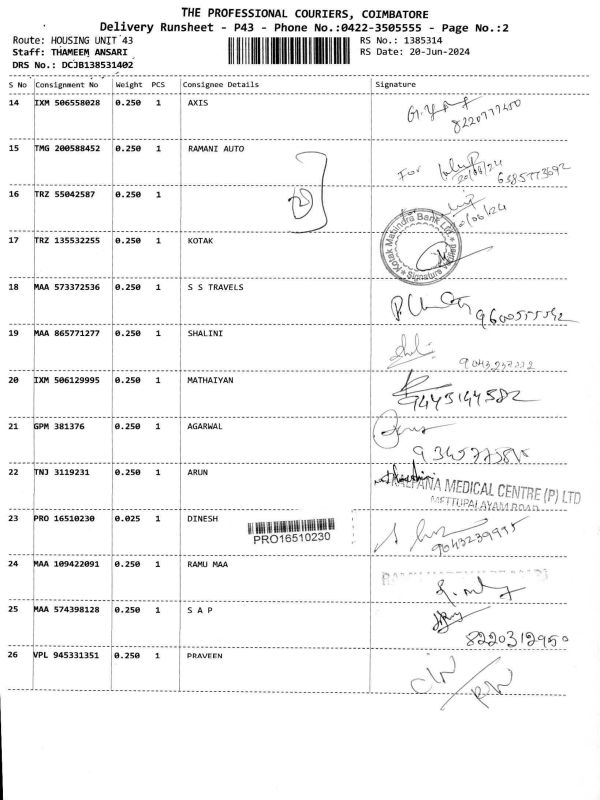 THE PROFESSIONAL COURIERS, COIMBATORE
Delivery Runsheet - P43 - Phone No.:0422-3505555 - Page No.:2
Route: HOUSING UNIT 43 RS No.: 1385314
Staff: THAMEEM ANSARI RS Date: 20-Jun-2024
DRS No.: DCJB138531402
S No Consignment No Weight PCS Consignee Details Signature
14 IXM 506558028 0.250 1 AXIS
8220777400
15 TMG 200588452 0.250 1 RAMANI AUTO
For 20/06/24 6385773692
16 TRZ 55042587 0.250 1
17 TRZ 135532255 0.250 1 KOTAK
Kotak Mahindra Bank Ltd.
Signature
18 MAA 573372536 0.250 1 S S TRAVELS
19 MAA 865771277 0.250 1 SHALINI
20 IXM 506129995 0.250 1 MATHAIYAN
9445144582
21 GPM 381376 0.250 1 AGARWAL
22 TNJ 3119231 0.250 1 ARUN
KALPANA MEDICAL CENTRE (P) LTD
METTUPALAYAM ROAD
23 PRO 16510230 0.025 1 DINESH
PRO16510230
9043239995
24 MAA 109422091 0.250 1 RAMU MAA
25 MAA 574398128 0.250 1 S A P
8220312950
26 VPL 945331351 0.250 1 PRAVEEN